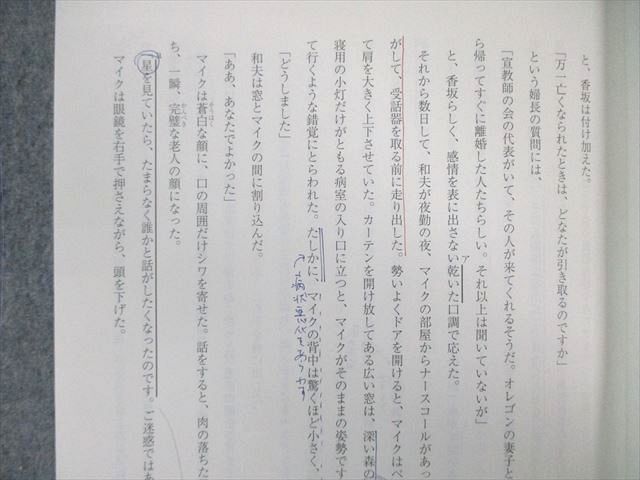 と、香坂は付け加えた。
「万一亡くなられたときは、どなたが引き取るのですか」
という婦長の質問には、
「宣教師の会の代表がいて、その人が来てくれるそうだ。オレゴンの妻子と
ら帰ってすぐに離婚した人たちらしい。それ以上は聞いていないが」
と、香坂らしく、感情を表に出さない乾いた口調で応えた。
ア
それから数日して、和夫が夜勤の夜、マイクの部屋からナースコールがあっ
がして、受話器を取る前に走り出した。勢いよくドアを開けると、マイクはベ
て肩を大きく上下させていた。カーテンを開け放してある広い窓は、深い森の
寝用の小灯だけがともる病室の入り口に立つと、マイクがそのままの姿勢です
て行くような錯覚にとらわれた。たしかに、マイクの背中は驚くほど小さく、
病状悪化をあらわす
「どうしました」
和夫は窓とマイクの間に割り込んだ。
「ああ、あなたでよかった」
マイクは蒼白な顔に、口の周囲だけシワを寄せた。話をすると、肉の落ちた
そうはく
ち、一瞬、完璧な老人の顔になった。
かんぺき
「星を見ていたら、たまらなく誰かと話がしたくなったのです。ご迷惑ではあ
マイクは眼鏡を右手で押さえながら、頭を下げた。